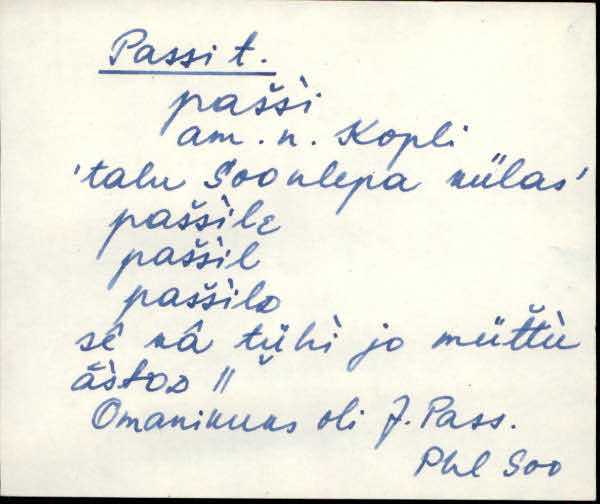 Passi t.
pašši
am. n. Kopli
'talu Soonlepa külas'
paššìle
paššìl
paššìlᴅ
sê kâ tühì jo müťťù
āštoᴅ //
Omanikuks oli J. Pass.
Phl Soo